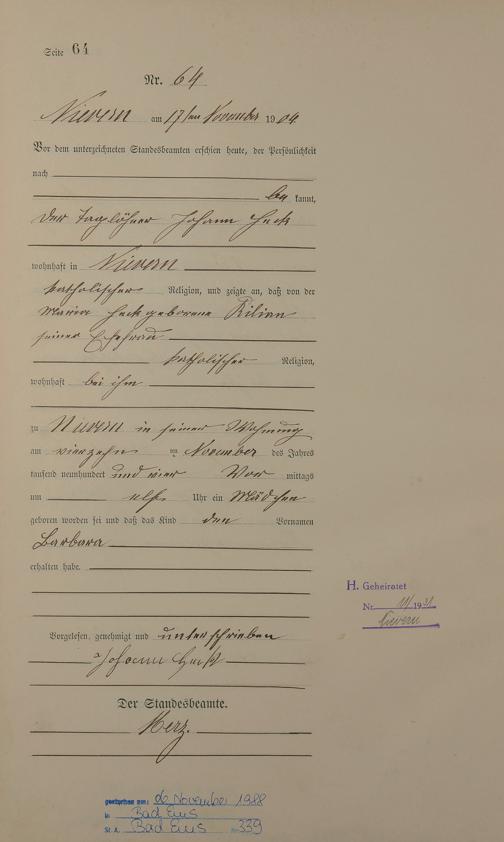 Seite 64
Nr. 64
Nievern am 17ten November 1904
Vor dem unterzeichneten Standesbeamten erschien heute, der Persönlichkeit
nach
be kannt,
der Taglöhner Johann Heck
wohnhaft in Nievern
katholischer Religion, und zeigte an, daß von der
Maria Heck geborene Kilian
seiner Ehefrau
katholischer Religion,
wohnhaft bei ihm
zu Nievern in seiner Wohnung
am vierzehn ten November des Jahres
tausend neunhundert und vier Vor mittags
um elf Uhr ein Mädchen
geboren worden sei und daß das Kind den Vornamen
Barbara
erhalten habe.
Vorgelesen, genehmigt und unterschrieben
Johann Heck
Der Standesbeamte.
Merz.
H. Geheiratet
Nr. 1931
Nievern
gestorben am: 06 November 1988
in Bad Ems
St. A. Bad Ems Nr. 339